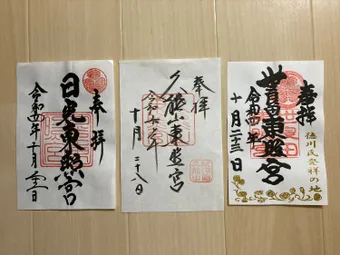 奉拝
日光東照宮
令和四年十月 日
奉拝
久能山東照宮
令和 年
十月二十八日
奉拝
世良田東照宮
令和四年
十月二十三日
徳川氏発祥の地